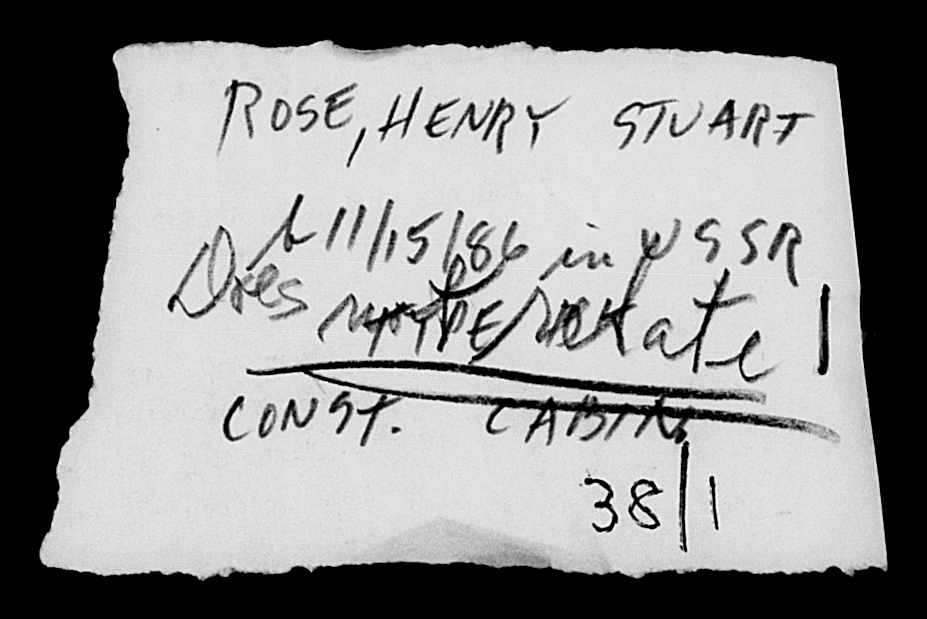 ROSE, HENRY STUART
b 11/15/86 in USSR
Does not relate
CONST. CABIN
38/1